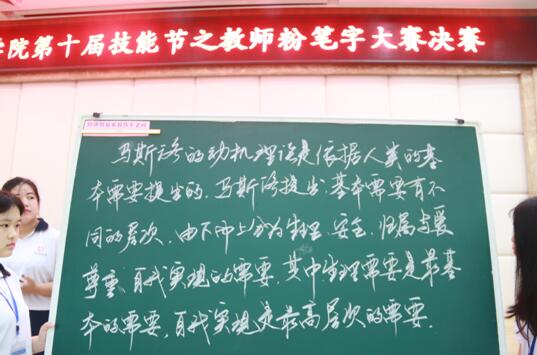 学院第十届技能节之教师粉笔字大赛决赛
马斯洛的动机理论是依据人类的基
本需要提出的。马斯洛提出，基本需要有不
同的层次，由下而上分为生理、安全、归属与爱
尊重、自我实现的需要，其中生理需要是最基
本的需要，自我实现是最高层次的需要．